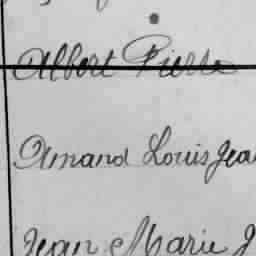 Albert Pierre
Amand Louis Jea
Jean Marie J